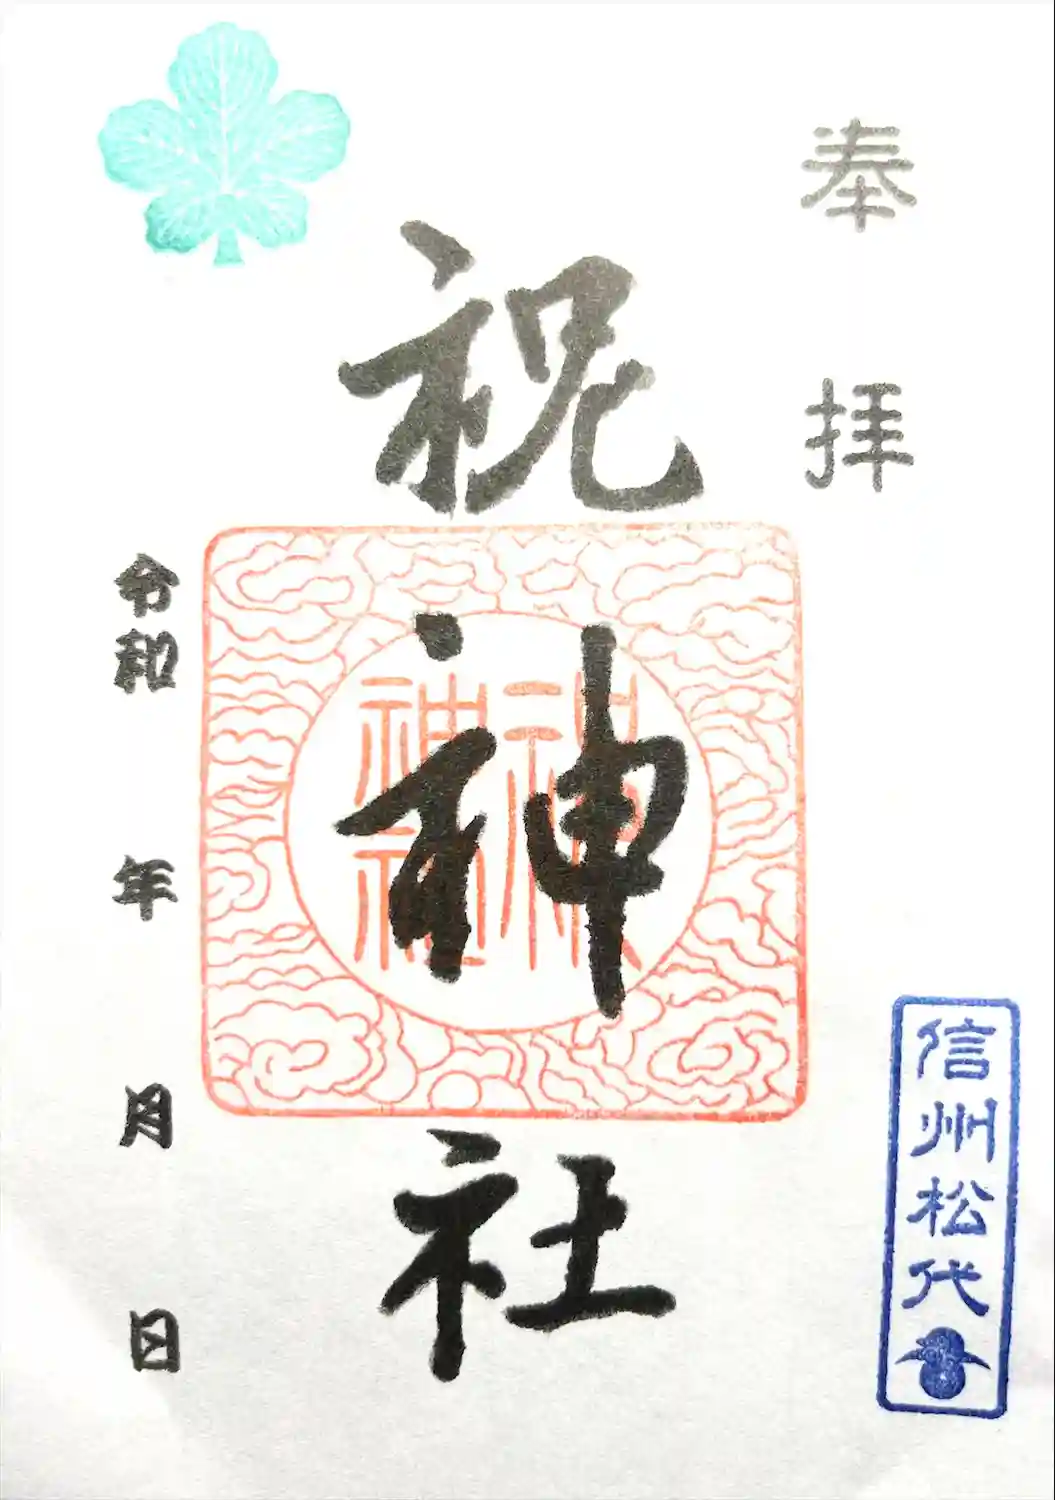 奉拝
祝神社
祝神社
令和 年 月 日
信州松代